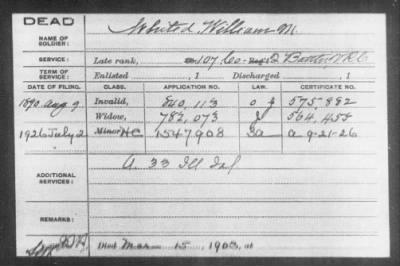 DEAD
NAME OF SOLDIER: Whited, William M.
SERVICE: Late rank, 107 Co. 2 Batt'n V.R.C.
TERM OF SERVICE: Enlisted , 1 Discharged , 1
DATE OF FILING. CLASS. APPLICATION NO. LAW. CERTIFICATE NO.
1890 Aug 9 Invalid, 840,113 575,882
Widow, 782,073 564,455
1926 July 2 Minor HC 1547908 Ia a 9-21-26
ADDITIONAL SERVICES: A. 33 Ill Inf
REMARKS:
Died Mar 15, 1903, at